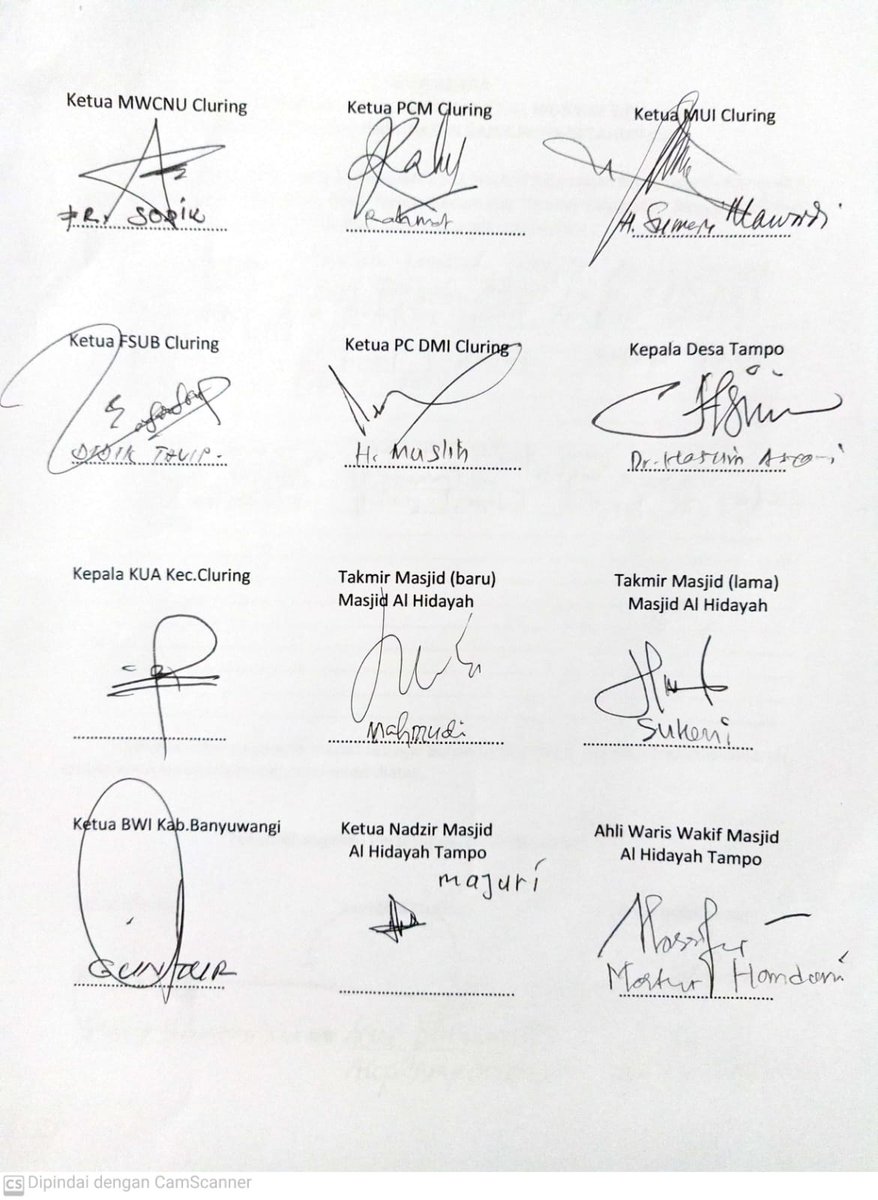 Ketua MWCNU Cluring
Ketua PCM Cluring
Ketua MUI Cluring
SODIK
Rahmat
H.
Ketua FSUB Cluring
Ketua PC DMI Cluring
Kepala Desa Tampo
DIDIK
H. Muslih
Dr. Hasyim
Kepala KUA Kec.Cluring
Takmir Masjid (baru)
Masjid Al Hidayah
Takmir Masjid (lama)
Masjid Al Hidayah
Mahmudi
Sukeni
Ketua BWI Kab.Banyuwangi
Ketua Nadzir Masjid
Al Hidayah Tampo
Ahli Waris Wakif Masjid
Al Hidayah Tampo
majuri
GUNTUR
Hamdani
CS Dipindai dengan CamScanner